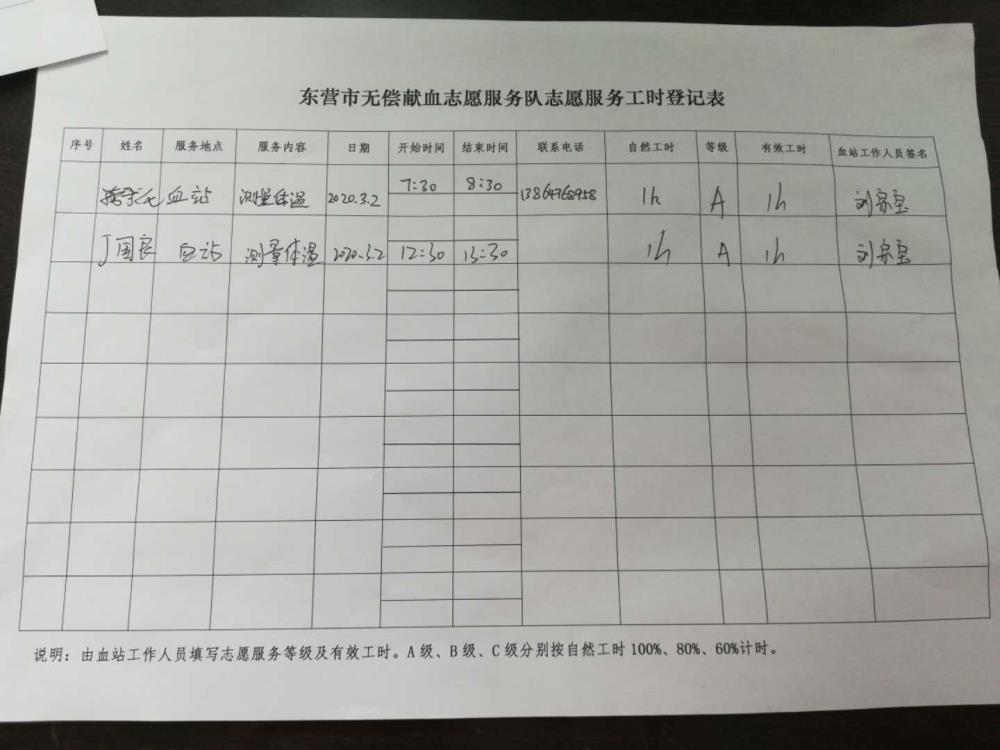 东营市无偿献血志愿服务队志愿服务工时登记表
序号 姓名 服务地点 服务内容 日期 开始时间 结束时间 联系电话 自然工时 等级 有效工时 血站工作人员签名
血站 测量体温 2020.3.2 7:30 8:30 13864768958 1h A 1h
丁国良 血站 测量体温 2020.3.2 12:30 13:30 1h A 1h
说明：由血站工作人员填写志愿服务等级及有效工时。A级、B级、C级分别按自然工时100%、80%、60%计时。